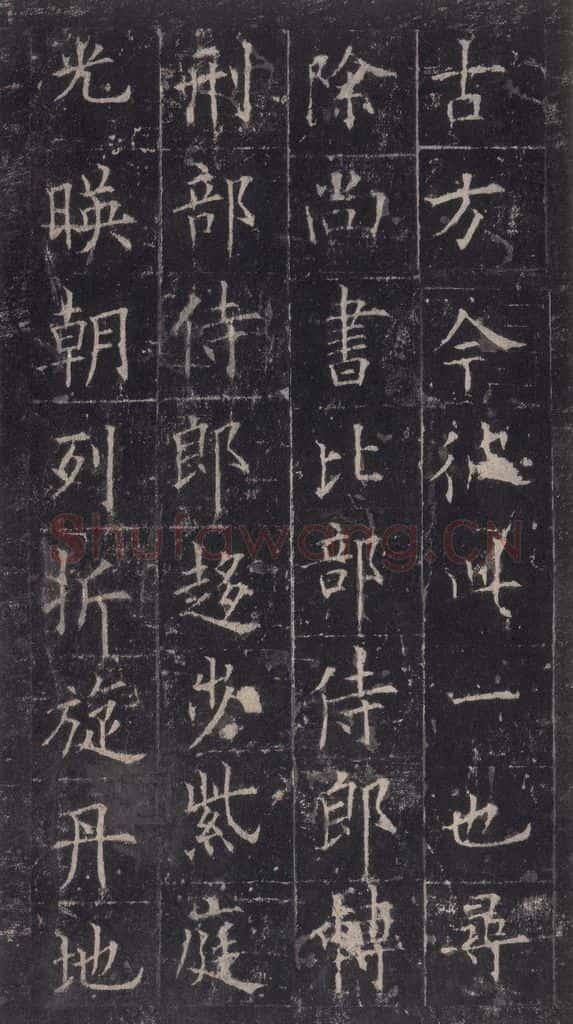 古方今彼此一也尋
除尚書比部侍郎轉
刑部侍郎趍步紫庭
光暎朝列折旋丹地
Shufawang.CN